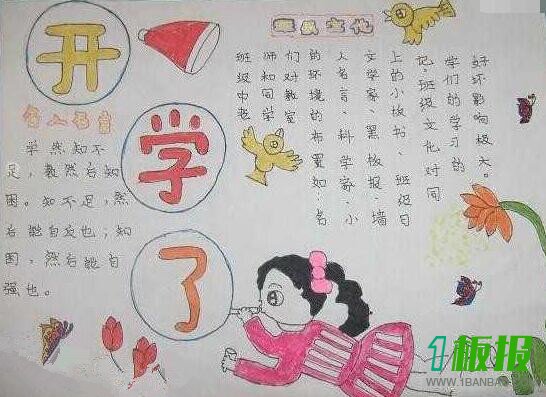 开
学
了
名人名言
学然知不
足，教然后知
困。知不足，然
后能自反也；知
困，然后能自
强也。
班级文化
班级中老
师和同学
们对教室
的环境的布置如：名
人名言、科学家、小
文学家、黑板报、墙
上的小板书、班级日
记，班级文化对同
学们的学习的
好坏影响极大。
1板报
WWW.1BANBAO.COM